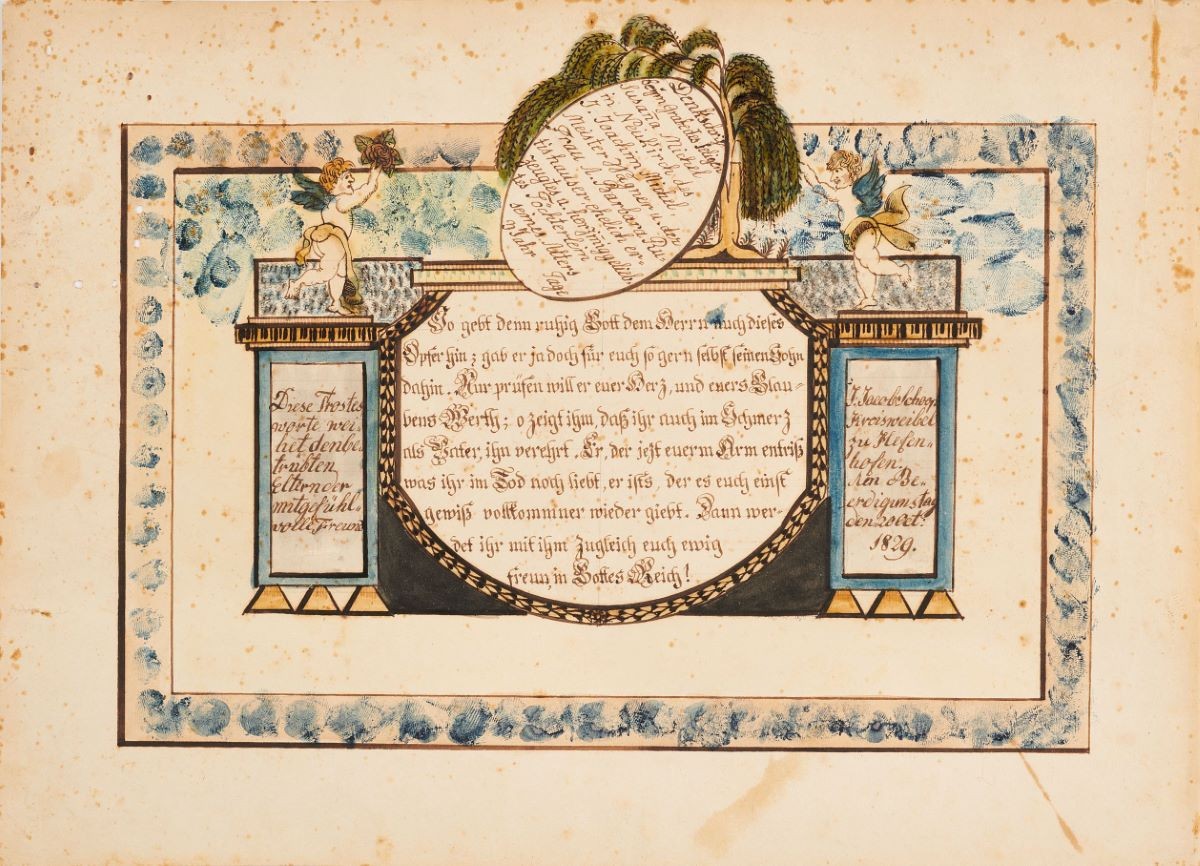 Denkwort
Susana Michel
in Neukirch, des
J. Joachim Michel
Meister Wagner u. der
Frau A. Barbara
ehelich er-
zeugtes u.
tes Töchterlein,
seines Alters
Jahr Tage
So gebt denn ruhig Gott dem Herrn auch dieses
Opfer hin; gab er ja doch für euch so gern selbst seinen Sohn
dahin. Nur prüfen will er euer Herz, und euers Glau-
bens Werth; o zeigt ihm, daß ihr auch im Schmerz
als Vater, ihn verehrt. Er, der jezt euerm Arm entriß
was ihr im Tod noch liebt, er ists, der es euch einst
gewiß vollkommner wieder giebt. Dann wer-
det ihr mit ihm zugleich euch ewig
freun in Gottes Reich!
Diese Trostes
worte wei-
het den be-
trübten
Eltern der
mitgefühl-
volle Freund
J. Jacob Schoop
Kreisweibel
zu Hefen-
hofen.
Am Be-
erdigunstag
den 20 Oct.
1829.